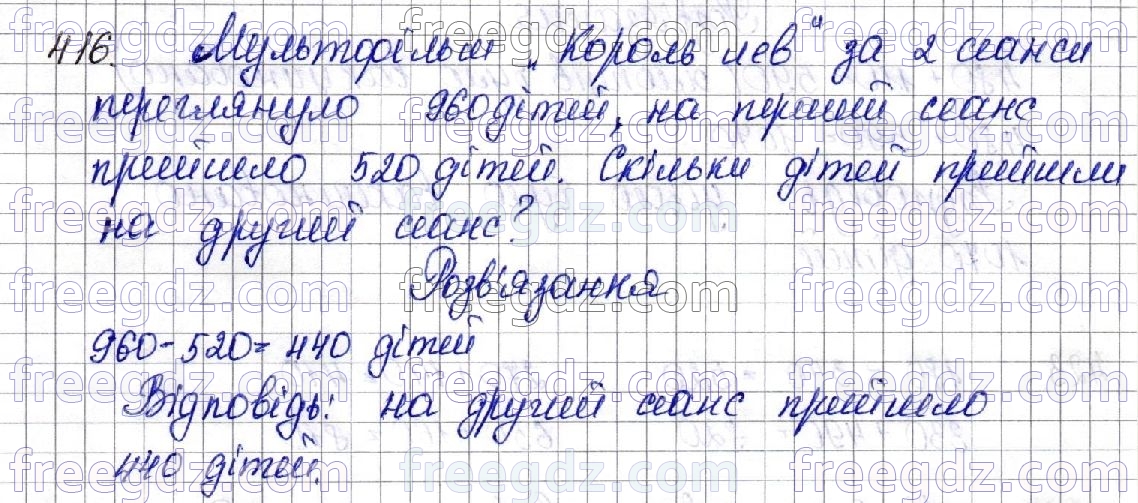 416. Мультфільм „Король лев“ за 2 сеанси
переглянуло 960 дітей, на перший сеанс
прийшло 520 дітей. Скільки дітей прийшли
на другий сеанс?
Розв'язання
960-520=440 дітей
Відповідь: на другий сеанс прийшло
440 дітей.
freegdz.com